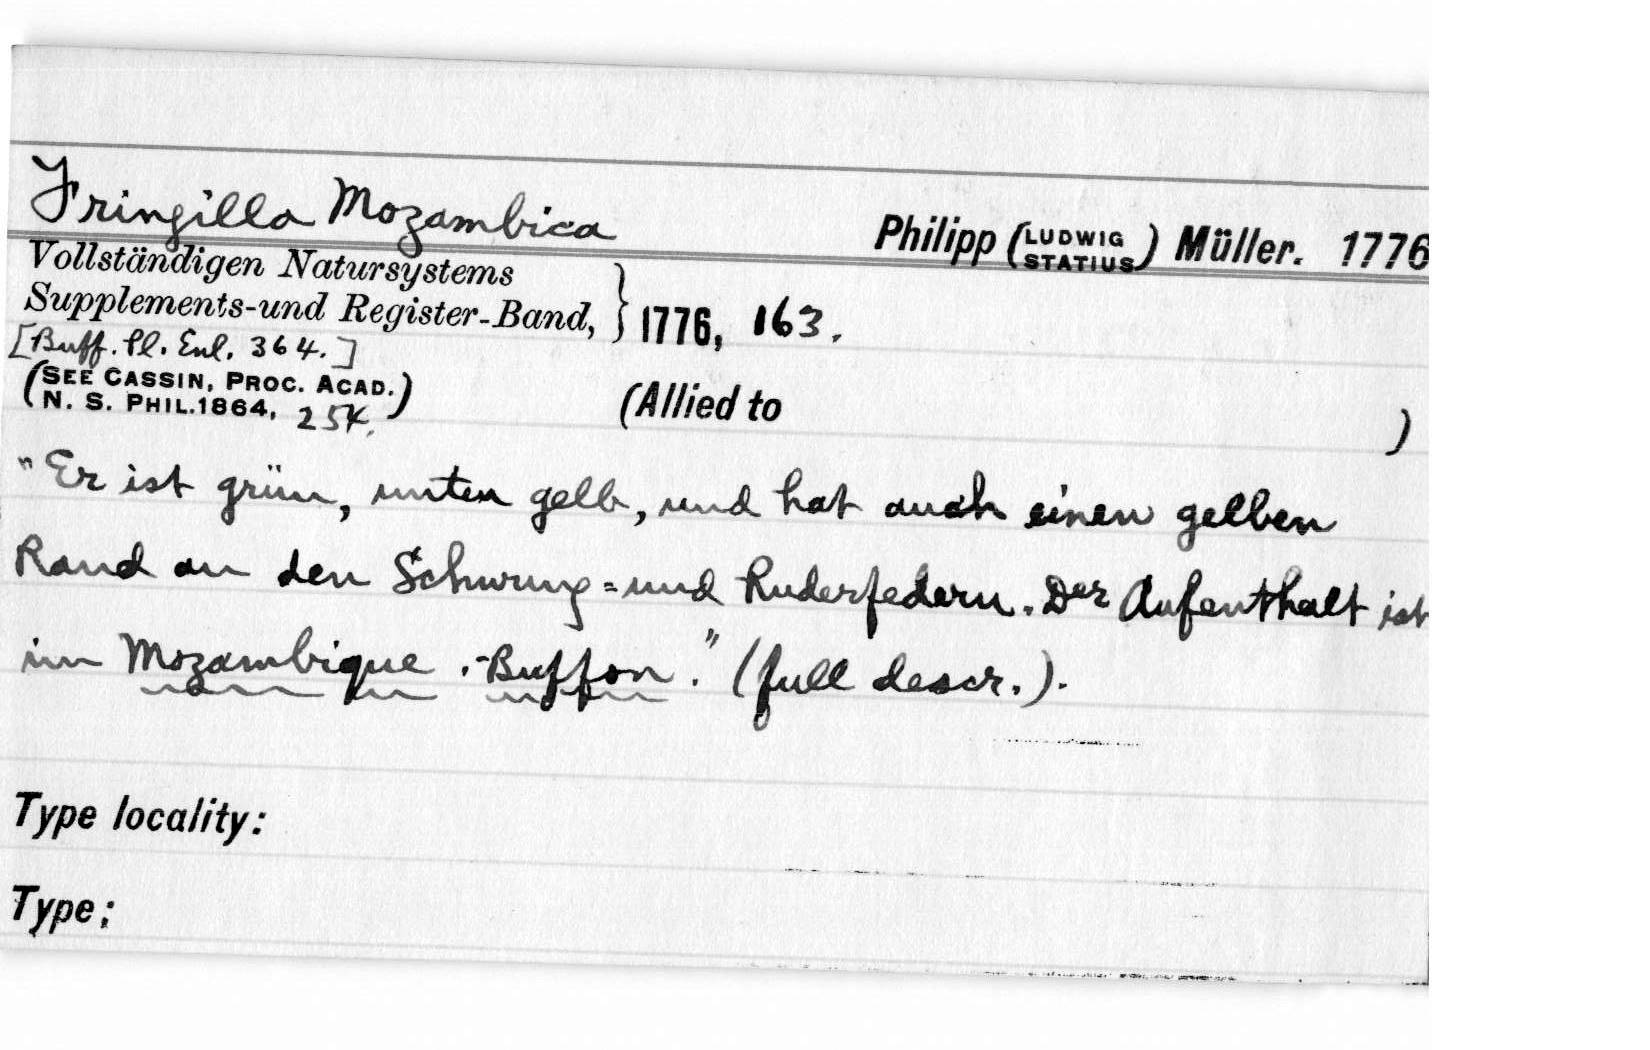 Fringilla Mozambica
Philipp (LUDWIG STATIUS) Müller. 1776
Vollständigen Natursystems
Supplements-und Register-Band, } 1776, 163.
[Buff. Pl. Enl. 364.]
(SEE CASSIN, PROC. ACAD.
N. S. PHIL. 1864, 254.)
(Allied to )
"Er ist grün, unten gelb, und hat auch einen gelben
Rand an den Schwung=und Ruderfedern. Der Aufenthalt ist
im Mozambique .-Buffon." (full descr.).
Type locality:
Type: